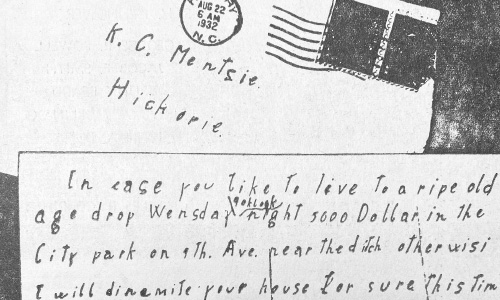 AUG 22
6 AM
1932
N.C.
K. C. Mentsie.
Hickorie.
In case you like To live To a ripe old
9 oklock
age drop Wensday night 5000 Dollar in the
City park on 9th. Ave. near the ditch otherwisi
I will dinemite your house For sure This Tim